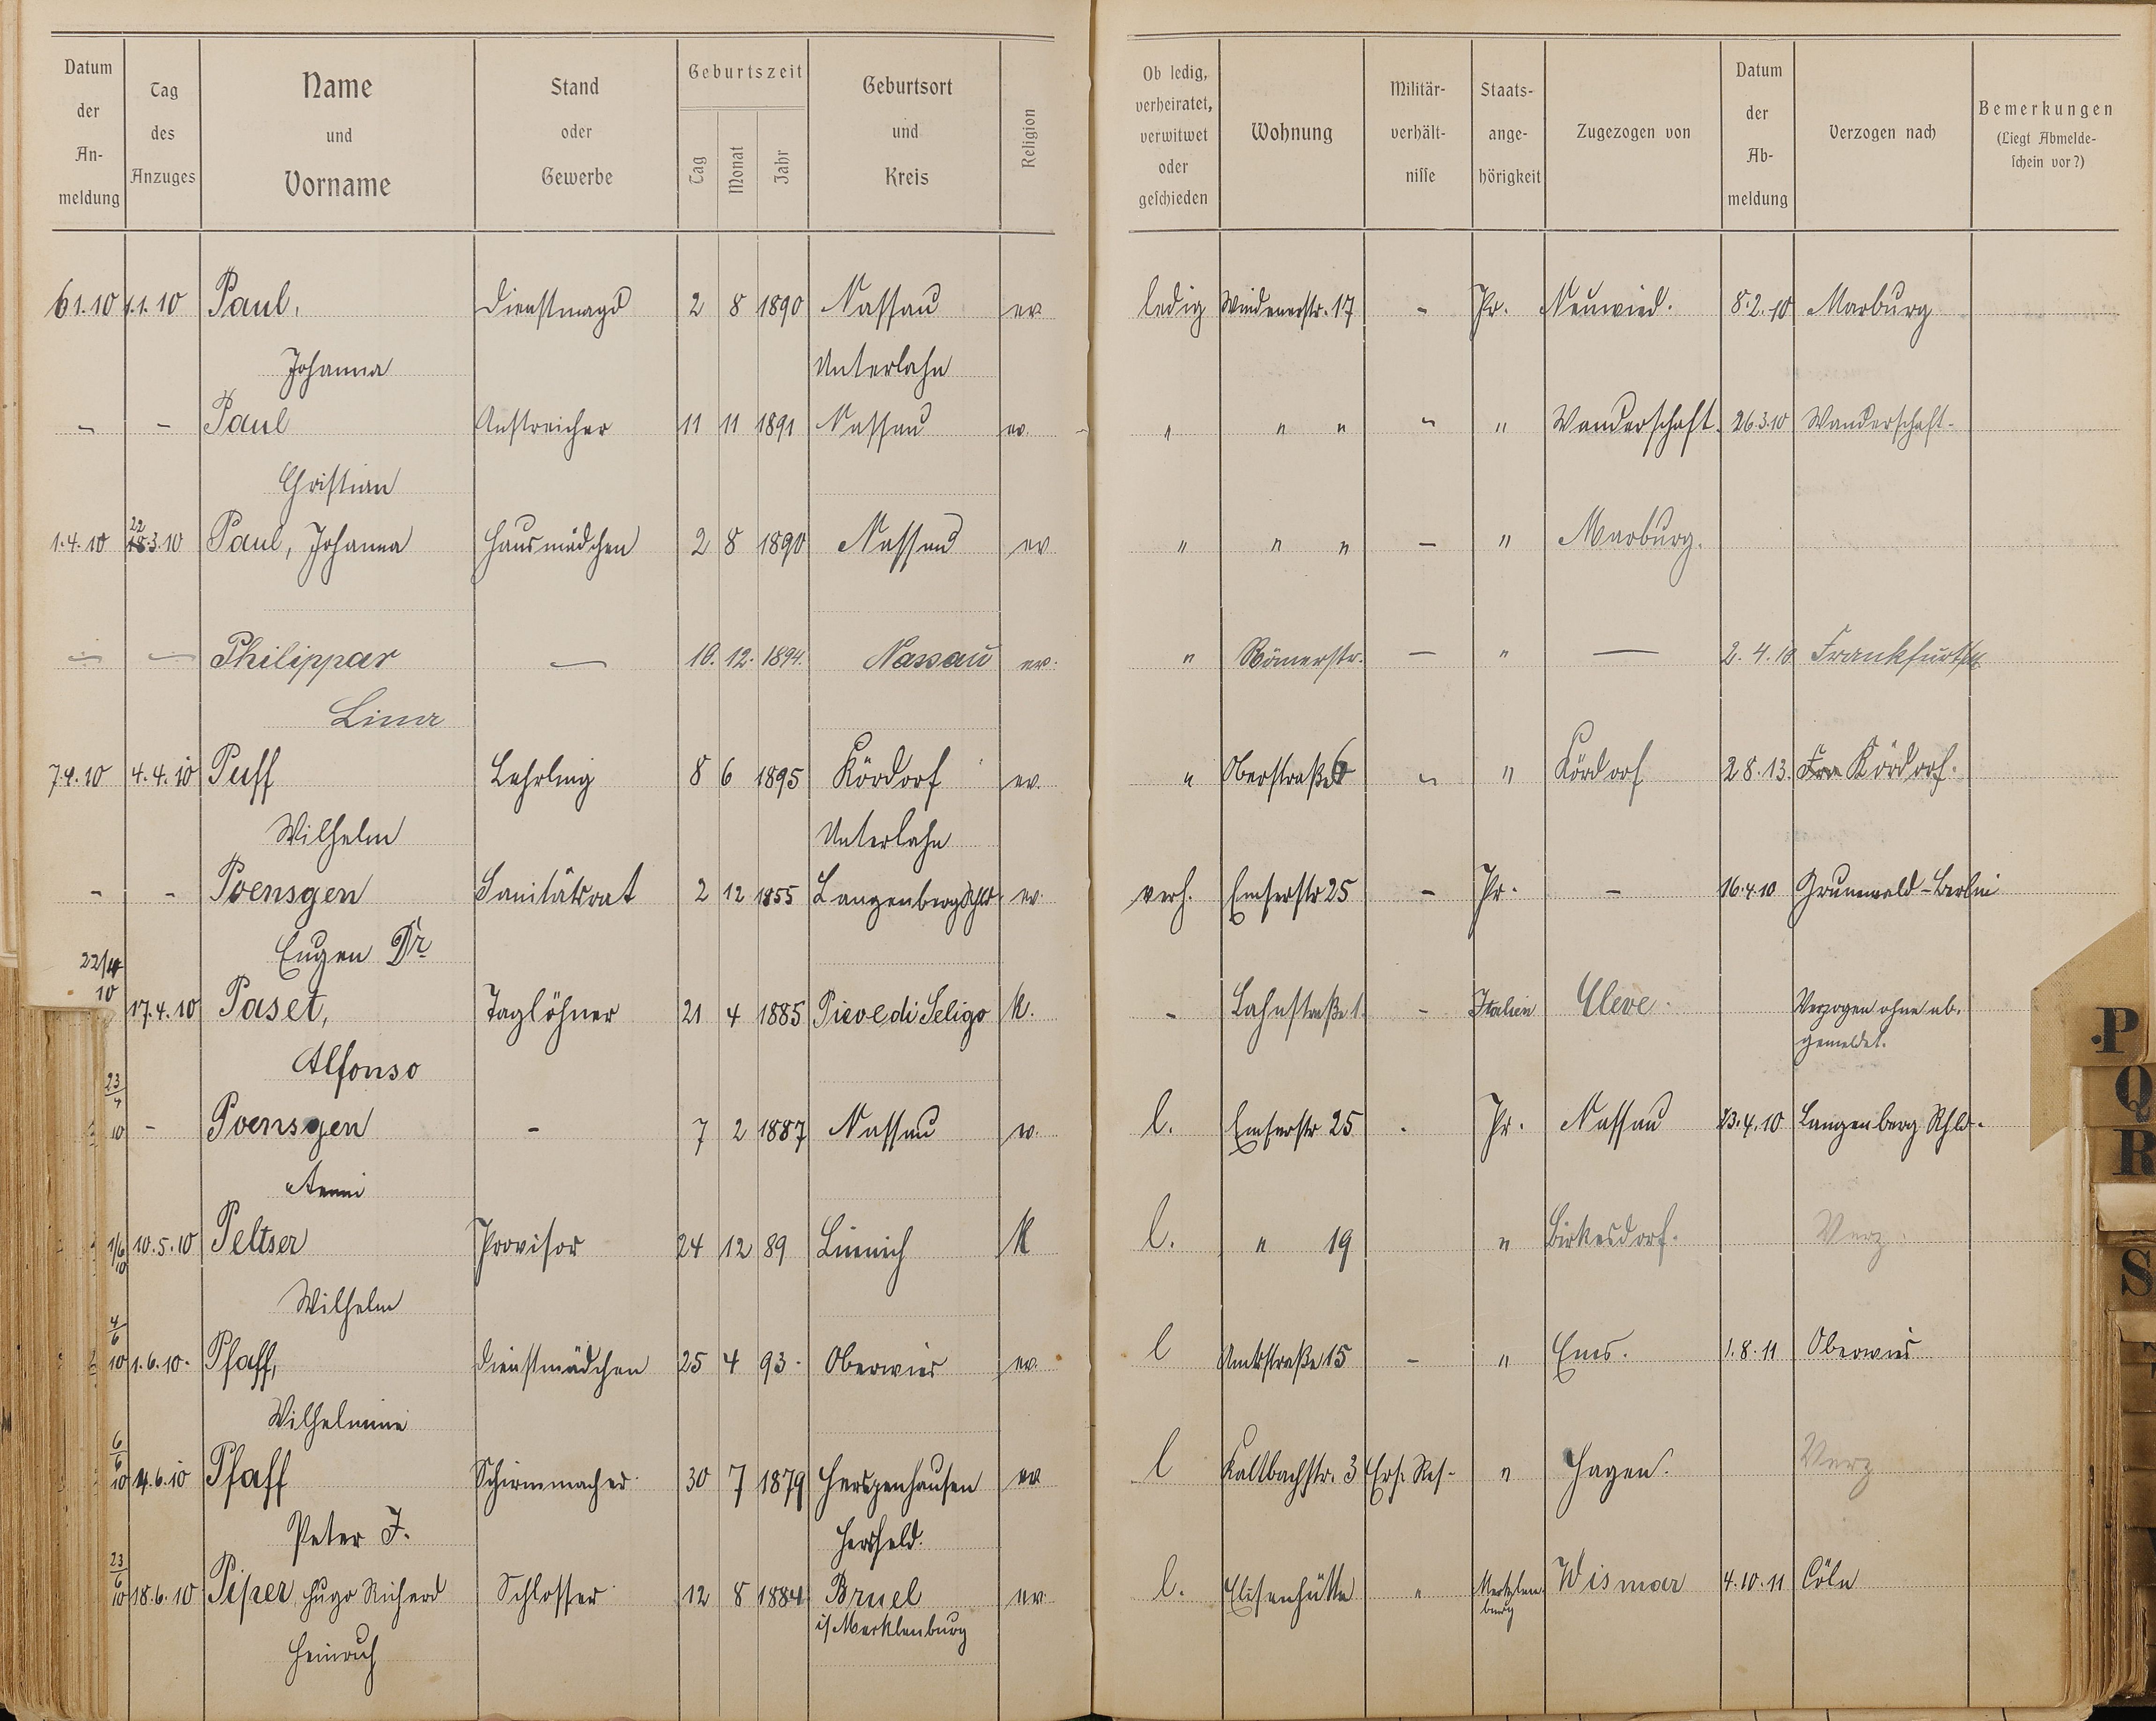 Datum der An- meldung | Tag des Anzuges | Name und Vorname | Stand oder Gewerbe | Geburtszeit Tag Monat Jahr | Geburtsort und Kreis | Religion | Ob ledig, verheiratet, verwitwet oder geschieden | Wohnung | Militär- verhält- nisse | Staats- ange- hörigkeit | Zugezogen von | Datum der Ab- meldung | Verzogen nach | Bemerkungen (Liegt Abmelde- schein vor?)
6.1.10 1.1.10 Paul, Dienstmagd 2 8 1890 Nassau ev. ledig Windenerstr. 17 - Pr. Neuwied. 8.2.10 Marburg
Johanna Unterlahn
- - Paul Anstreicher 11 11 1891 Nassau ev. " " " - " Wanderschaft. 26.3.10 Wanderschaft-
Christian
22
1.4.10 18.3.10 Paul, Johanna Hausmädchen 2 8 1890 Nassau ev " " " - " Marburg.
- - Philippar - 10. 12. 1894. Nassau ev. " Römerstr. - " - 2.4.10 Frankfurt
Lina
7.4.10 4.4.10 Puff Lehrling 8 6 1895 Kördorf ev. " Oberstraße 6 - " Kördorf 28.13. Fra Kördorf.
Wilhelm Unterlahn
- - Poensgen Sanitätsrat 2 12 1855 Langenberg Rhld. ev. verh. Emserstr 25 - Pr. - 16.4.10 Grunewald-Berlin
Eugen Dr
22/4
10 17.4.10 Paset, Taglöhner 21 4 1885 Pieve di Seligo k. - Lahnstraße 1. - Italien Cleve. Verzogen ohne ab-
gemeldet.
Alfonso
23/4
10 - Poensgen - 7 2 1887 Nassau ev. l. Emserstr 25 . Pr. Nassau 23.4.10 Langenberg Rhld.
Anni
1/6
10 10.5.10 Peltser Provisor 24 12 89 Linnich K l. " 19 " Birkesdorf. Verz.
Wilhelm
4/6
10 1.6.10. Pfaff, Dienstmädchen 25 4 93. Oberwies ev. l Amtsstraße 15 - " Ems. 1.8.11 Oberwies
Wilhelmine
6/6
10 4.6.10 Pfaff Schirmmacher 30 7 1879 ev l Kaltbachstr. 3 Ers. Res. " Hagen. Verz
Peter J. Hersfeld.
23/6
10 18.6.10 Piper, Hugo Richard Schlosser 12 8 1884 Bruel ev l. Elisenhütte " Mecklen- Wismar 4.10.11 Cöln
burg
i/Mecklenburg
Heinrich
P
Q
R
S